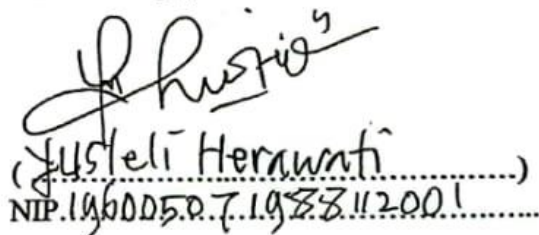 (Yusteli Herawati)
NIP. 196005071988112001